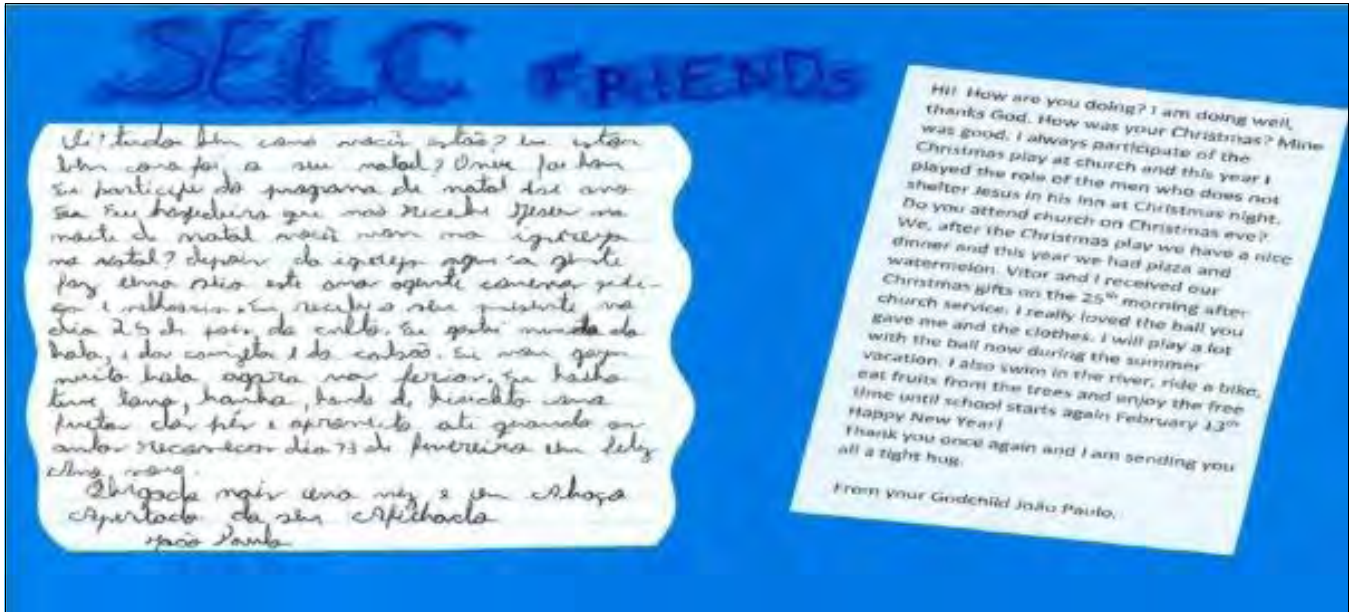 SELC FRIENDS
tudo bem como vocês estão? eu estou
bem como foi o seu natal? foi bom
Eu participo do programa de natal ano
que não recebe na
noite de natal você na igreja
no natal? depois da igreja a gente
faz uma este ano agente
e Eu recebi o seu presente no
dia 25 de pois do culto. Eu gostei muito da
bola, e das e do Eu vou
muito bola agora nas ferias. Eu
banho, de
frutas dos pés e aproveito ate quando as
dia 13 de fevereiro um feliz
Ano novo.
Obrigado mais uma vez e um Abraço
Apertado do seu Afilhado
João Paulo
Hi! How are you doing? I am doing well,
thanks God. How was your Christmas? Mine
was good. I always participate of the
Christmas play at church and this year I
played the role of the men who does not
shelter Jesus in his Inn at Christmas night.
Do you attend church on Christmas eve?
We, after the Christmas play we have a nice
dinner and this year we had pizza and
watermelon. Vitor and I received our
Christmas gifts on the 25th morning after
church service. I really loved the ball you
gave me and the clothes. I will play a lot
with the ball now during the summer
vacation. I also swim in the river, ride a bike,
eat fruits from the trees and enjoy the free
time until school starts again February 13th
Happy New Year!
Thank you once again and I am sending you
all a tight hug.
From your Godchild João Paulo.